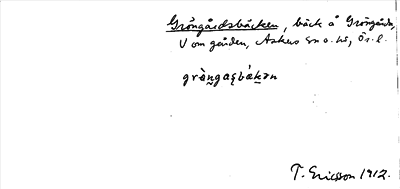 Gröngårdsbäcken, bäck å Gröngårds,
V om gården, Askers sn o. hd, Ör. l.
gròngaşbäkən
T. Ericsson 1912.